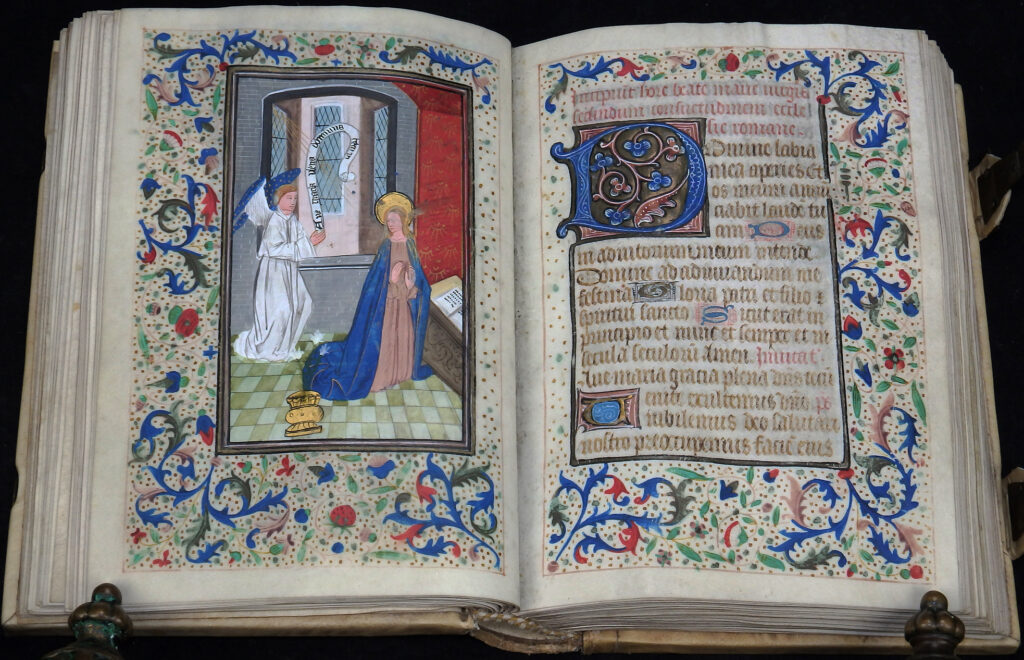 Aue plena dominus tecum
Incipiut hore beate marie virgis
secundum consuetudinem eccle
sie romane
Domine labia
mea aperies et
os meum annu
ciabit laude tu
am Deus
in adiutorium meum intende
Domine ad adiuuandum me
festina Gloria patri et filio et
spiritui sancto Sicut erat in
principio et nunc et semper et in
secula seculorū Amen Inuitat'
Aue maria gracia plena dns tecu
Uenite exultemus dno
iubilemus deo salutari
nostro preoccupemus facie eius